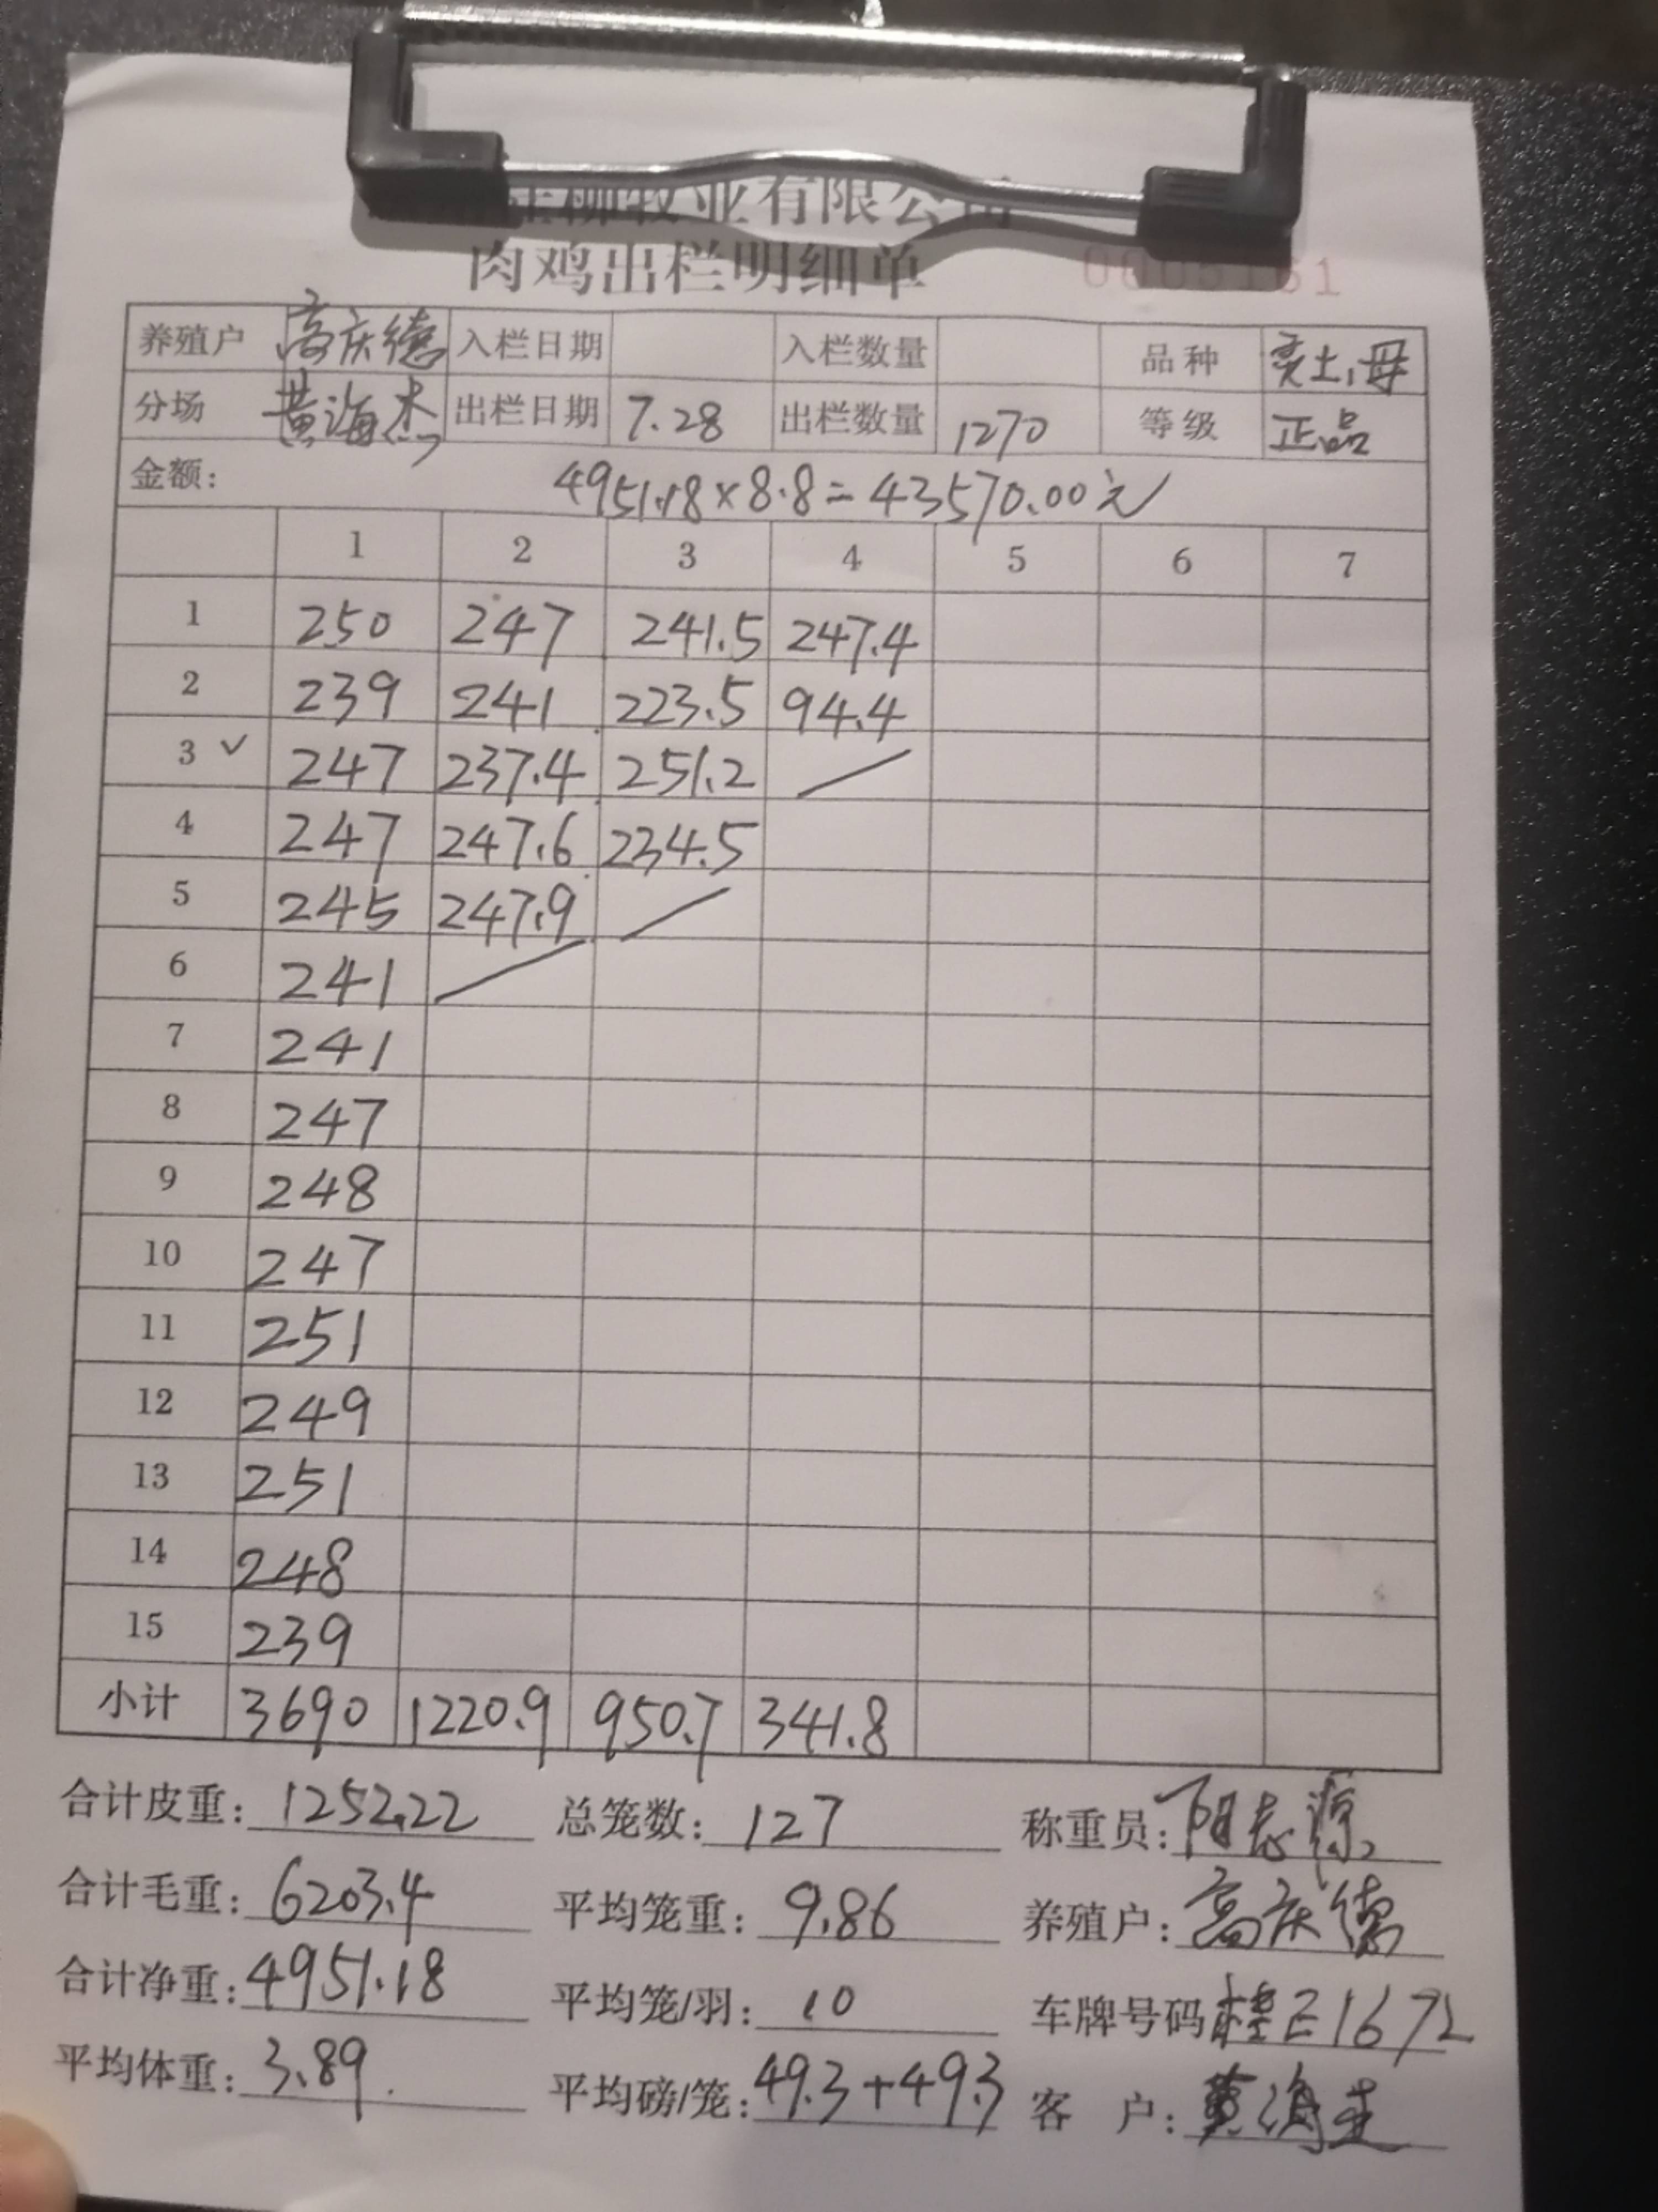 牧业有限公司
肉鸡出栏明细单
养殖户 高庆德 入栏日期 入栏数量 品种 土,母
分场 黄海杰 出栏日期 7.28 出栏数量 1270 等级 正品
金额: 4951.18×8.8=43570.00元
1 2 3 4 5 6 7
1 250 247 241.5 247.4
2 239 241 223.5 94.4
3 ✓ 247 237.4 251.2
4 247 247.6 234.5
5 245 247.9
6 241
7 241
8 247
9 248
10 247
11 251
12 249
13 251
14 248
15 239
小计 3690 1220.9 950.7 341.8
合计皮重: 1252.22 总笼数: 127 称重员: 阳志源
合计毛重: 6203.4 平均笼重: 9.86 养殖户: 高庆德
合计净重: 4951.18 平均笼/羽: 10 车牌号码 桂E1672
平均体重: 3.89. 平均磅/笼: 49.3+49.3 客 户: 黄海